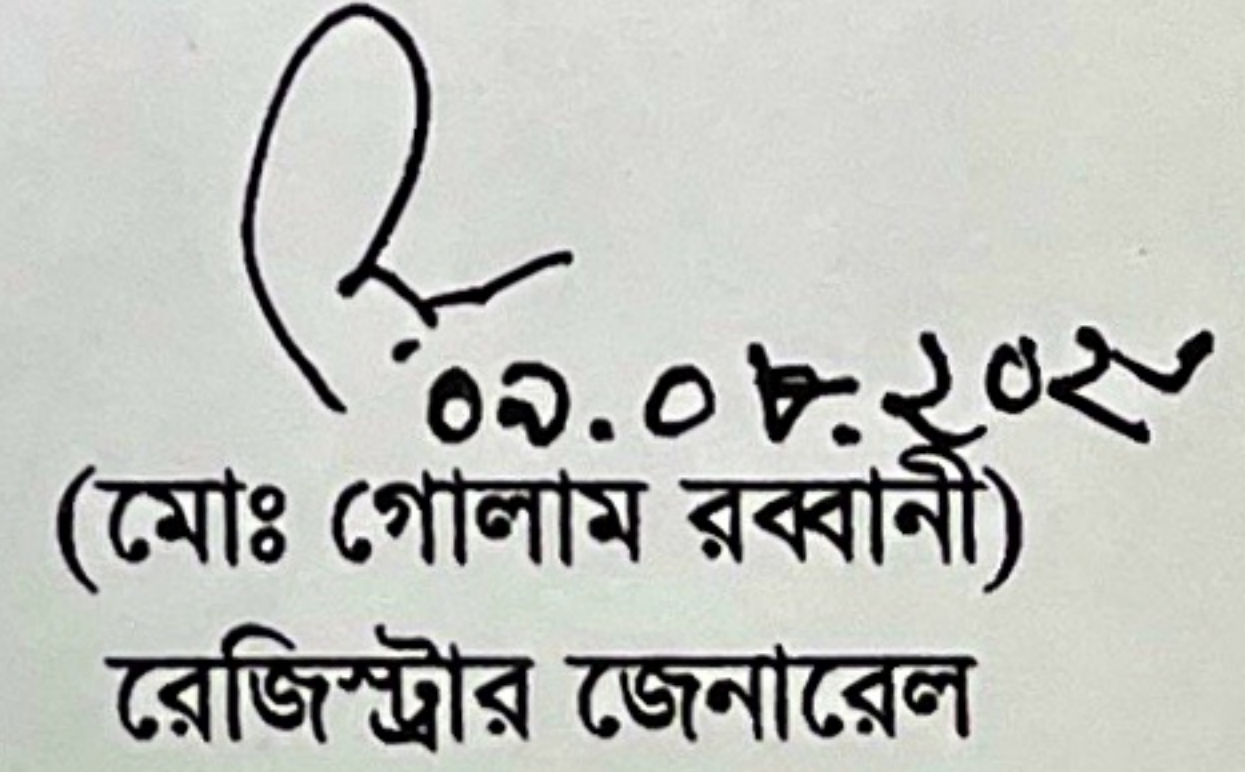 ০৯.০৮.২০২২
(মোঃ গোলাম রব্বানী)
রেজিস্ট্রার জেনারেল